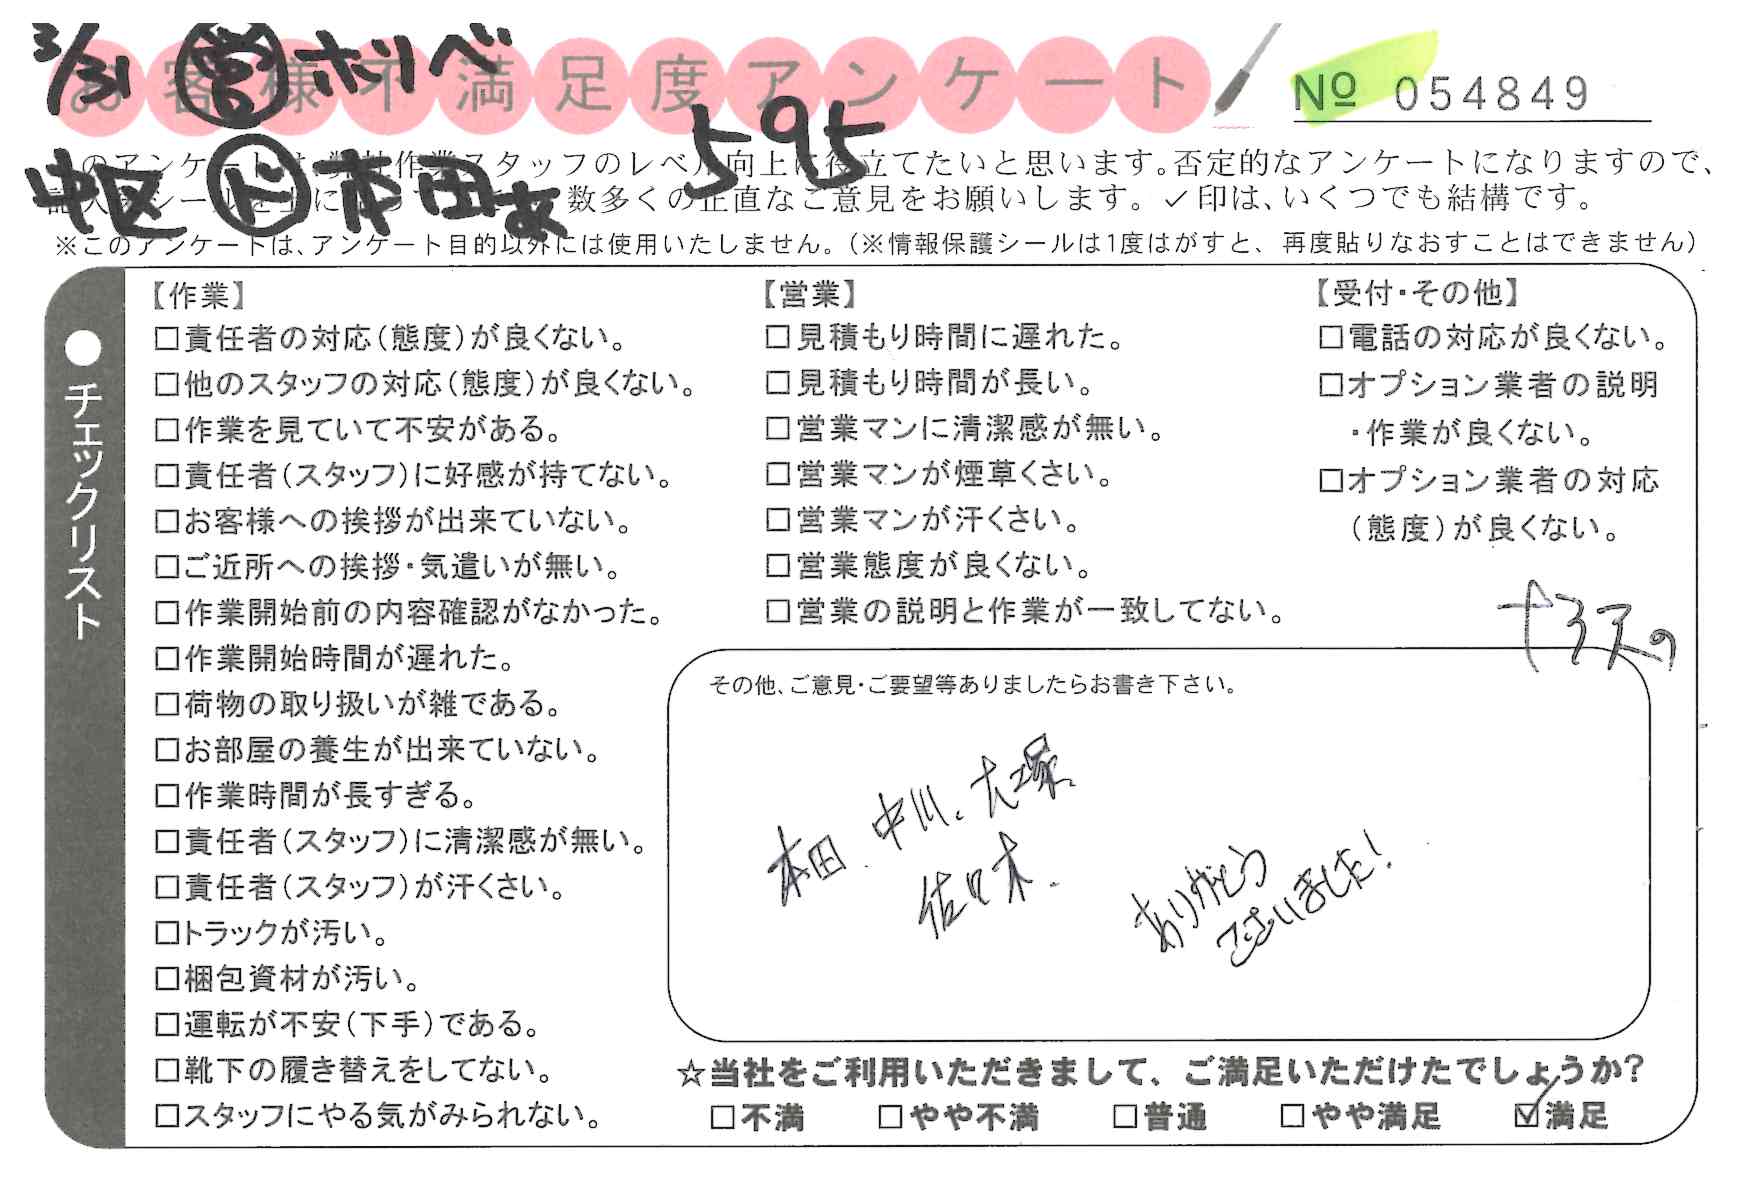 3/31 営 ホリベ
お客様不満足度アンケート
No 054849
595
中区 ド 本田
このアンケートは、弊社作業スタッフのレベル向上に役立てたいと思います。否定的なアンケートになりますので、
数多くの正直なご意見をお願いします。✓印は、いくつでも結構です。
※このアンケートは、アンケート目的以外には使用いたしません。(※情報保護シールは1度はがすと、再度貼りなおすことはできません)
●チェックリスト
【作業】
□責任者の対応(態度)が良くない。
□他のスタッフの対応(態度)が良くない。
□作業を見ていて不安がある。
□責任者(スタッフ)に好感が持てない。
□お客様への挨拶が出来ていない。
□ご近所への挨拶・気遣いが無い。
□作業開始前の内容確認がなかった。
□作業開始時間が遅れた。
□荷物の取り扱いが雑である。
□お部屋の養生が出来ていない。
□作業時間が長すぎる。
□責任者(スタッフ)に清潔感が無い。
□責任者(スタッフ)が汗くさい。
□トラックが汚い。
□梱包資材が汚い。
□運転が不安(下手)である。
□靴下の履き替えをしてない。
□スタッフにやる気がみられない。
【営業】
□見積もり時間に遅れた。
□見積もり時間が長い。
□営業マンに清潔感が無い。
□営業マンが煙草くさい。
□営業マンが汗くさい。
□営業態度が良くない。
□営業の説明と作業が一致してない。
【受付・その他】
□電話の対応が良くない。
□オプション業者の説明
・作業が良くない。
□オプション業者の対応
(態度)が良くない。
その他、ご意見・ご要望等ありましたらお書き下さい。
本田、中川、大塚
佐々木.
ありがとう
ございました!
☆当社をご利用いただきまして、ご満足いただけたでしょうか?
□不満 □やや不満 □普通 □やや満足 ☑満足